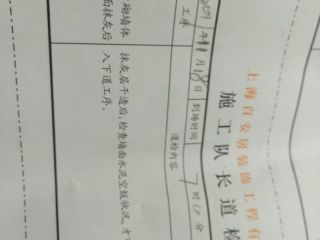 上海百安居装饰工程有
施工队长道检
年11月18日 到场时间 7时50分
工序
道检内容
砌墙体
面抹灰后
抹灰层干透后,检查墙面水泥空鼓状况,才
入下道工序.